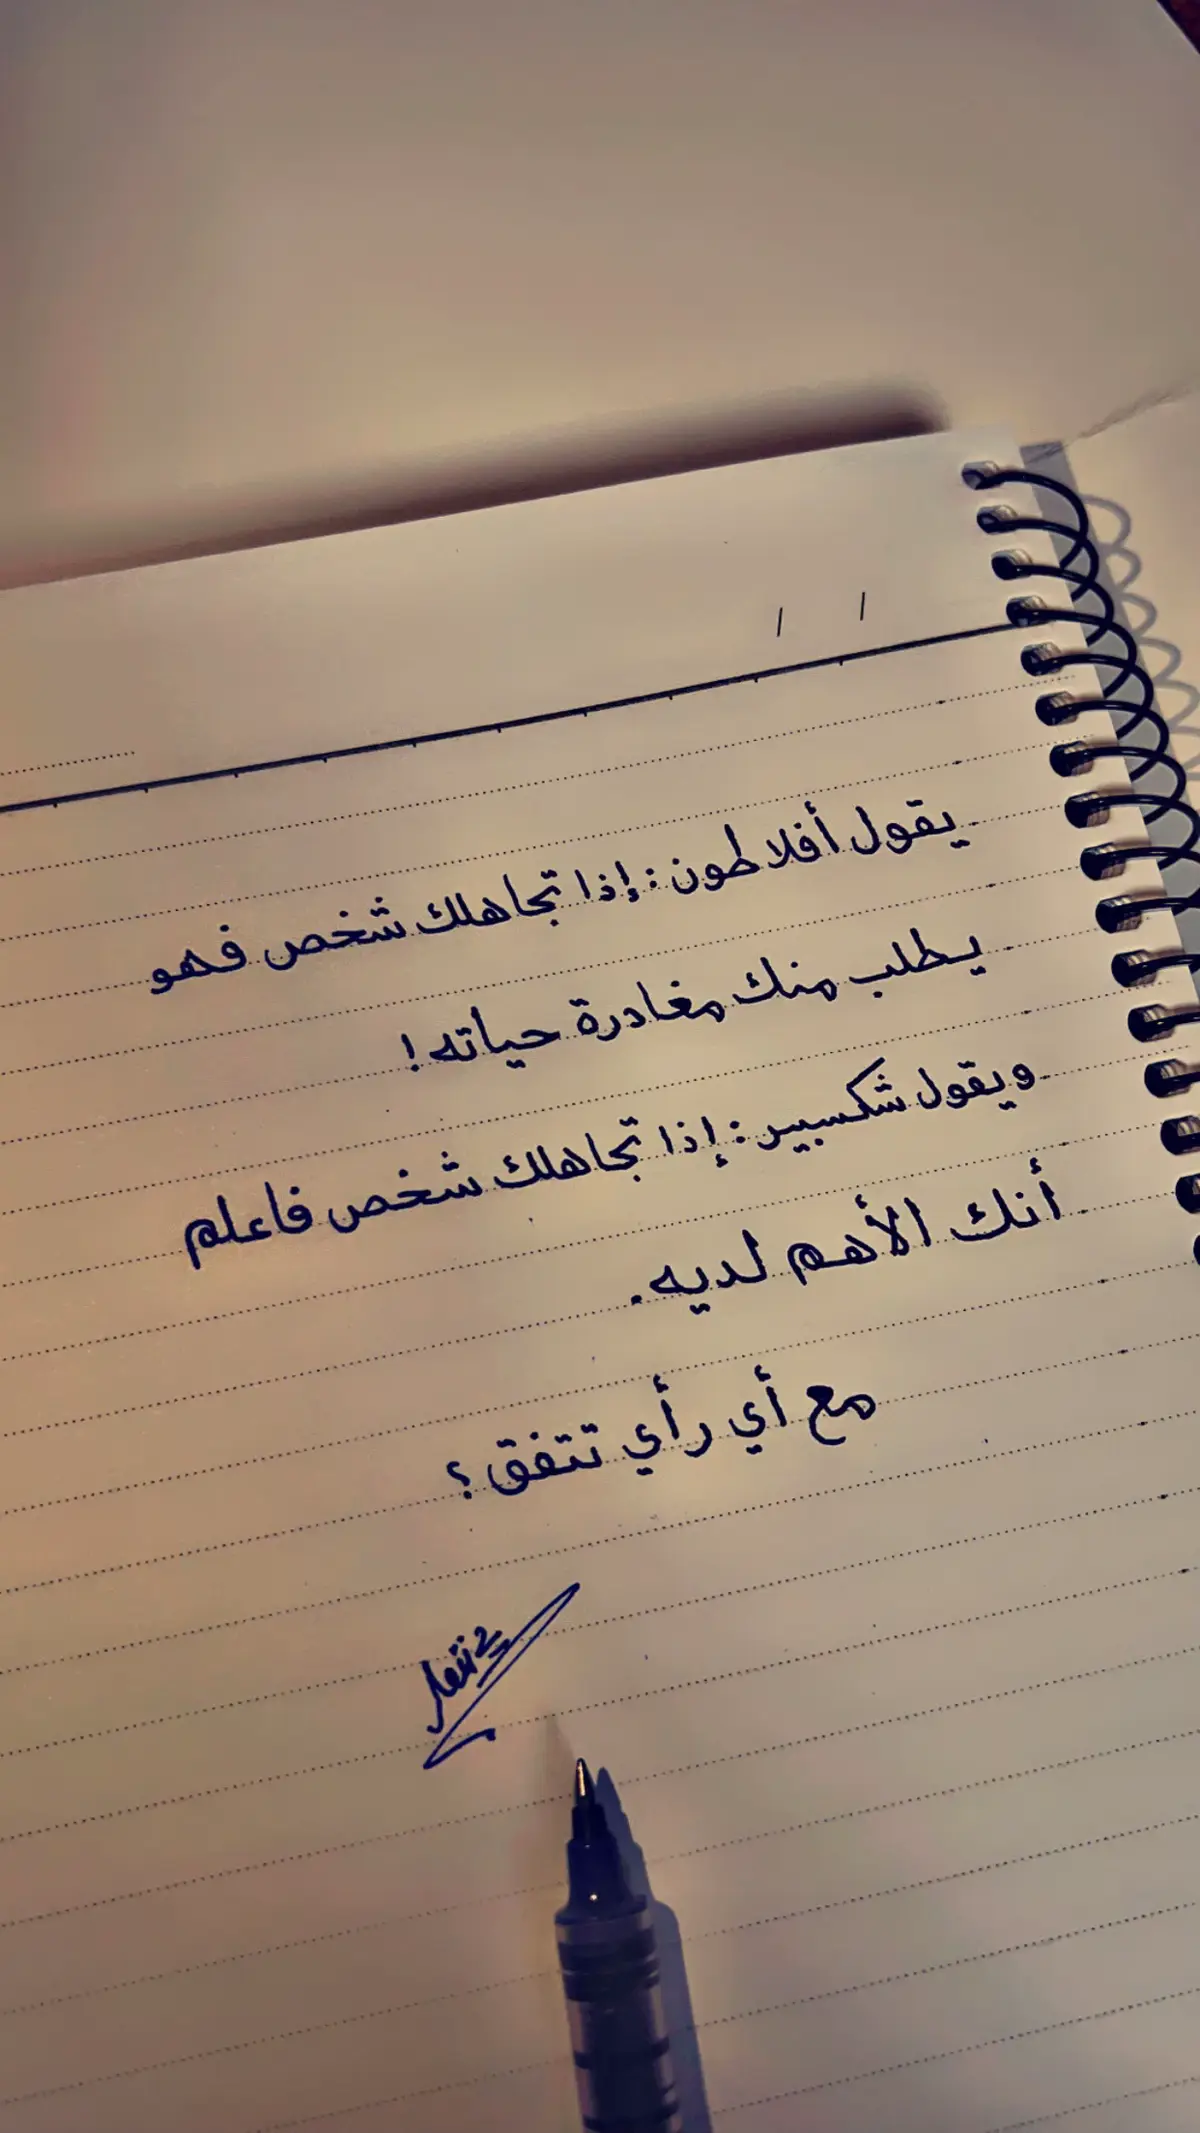 يقول أفلاطون: إذا تجاهلك شخص فهو
يطلب منك مغادرة حياته!
ويقول شكسبير: إذا تجاهلك شخص فاعلم
أنك الأهم لديه.
مع أي رأي تتفق؟